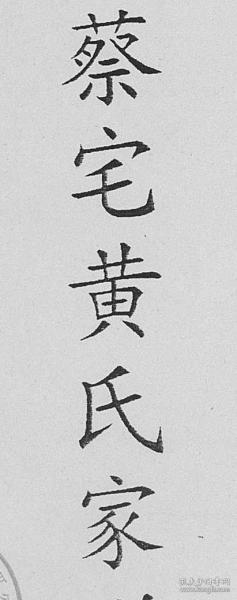 蔡宅黄氏家